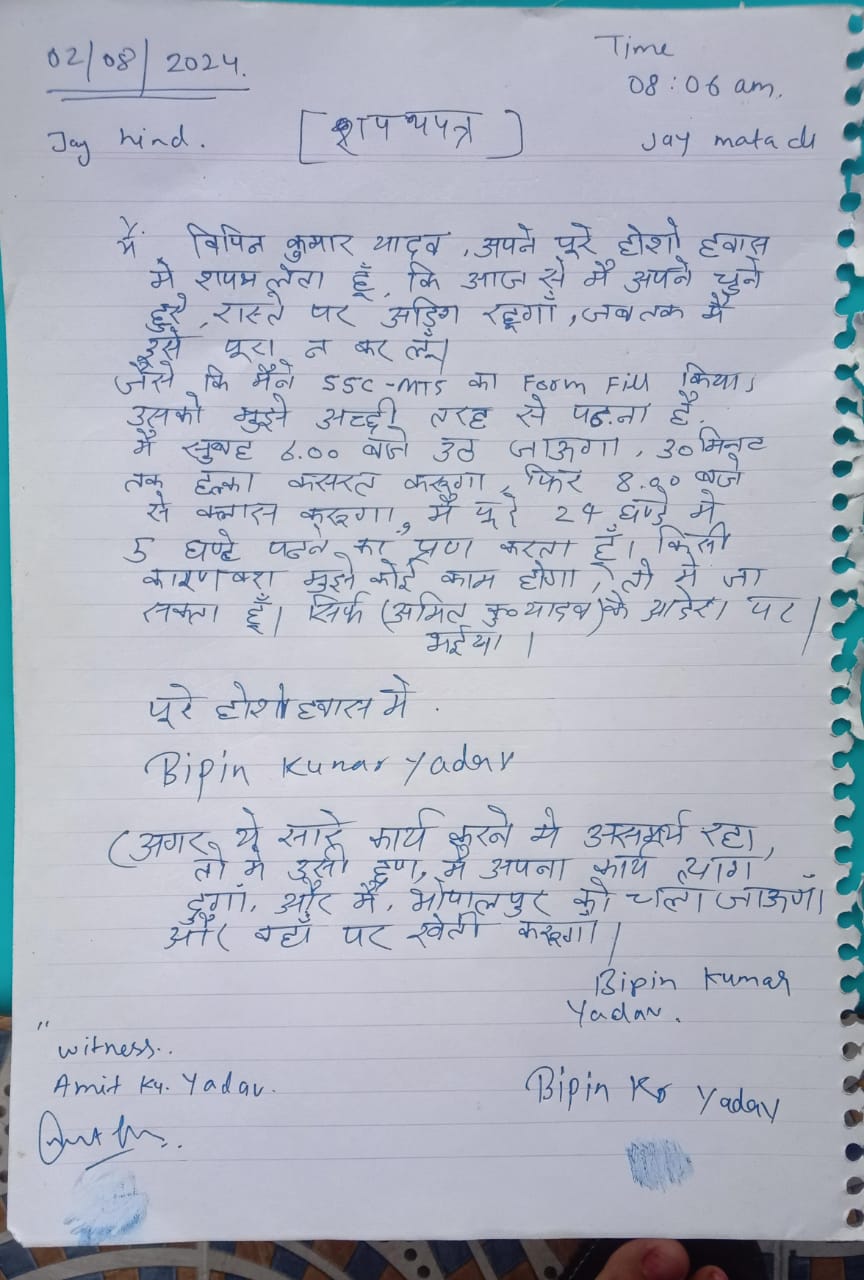 02/08/2024.
Time
08:06 am.
Jay hind.
[शपथपत्र]
Jay mata di
मैं विपिन कुमार यादव, अपने पूरे होशो हवास
मे शपथ लेता हूँ, कि आज से मै अपने चुने
हुये, रास्ते पर अडिग रहूगाँ, जब तक मैं
इसे पूरा न कर लूँ।
जैसे कि मैंने SSC-MTS का Form Fill किया।
उसको मुझे अच्छी तरह से पढ़ना है.
मै सुबह 6.00 बजे उठ जाऊगा, 30 मिनट
तक हल्का कसरत करूगा, फिर 8.00 बजे
से क्लास करूगा, मैं पूरे 24 घण्टे मे
5 घण्टे पढने का प्रण करता हूँ। किसी
कारण वश मुझे कोई काम होगा, तो मे जा
सकता हूँ। सिर्फ (अमित कु० यादव) के आदेश पर।
भईया।
पूरे होशो हवास मे.
Bipin Kumar Yadav
(अगर, ये सारे कार्य करने मे असमर्थ रहा,
तो मे उसी क्षण, मै अपना कार्य त्याग
दुगाँ, और मै, भोपालपुर को चला जाऊगाँ।
और वहाँ पर खेती करूगा।
Bipin Kumar
Yadav.
"
witness..
Amit Ku. Yadav.
Bipin Kr Yadav